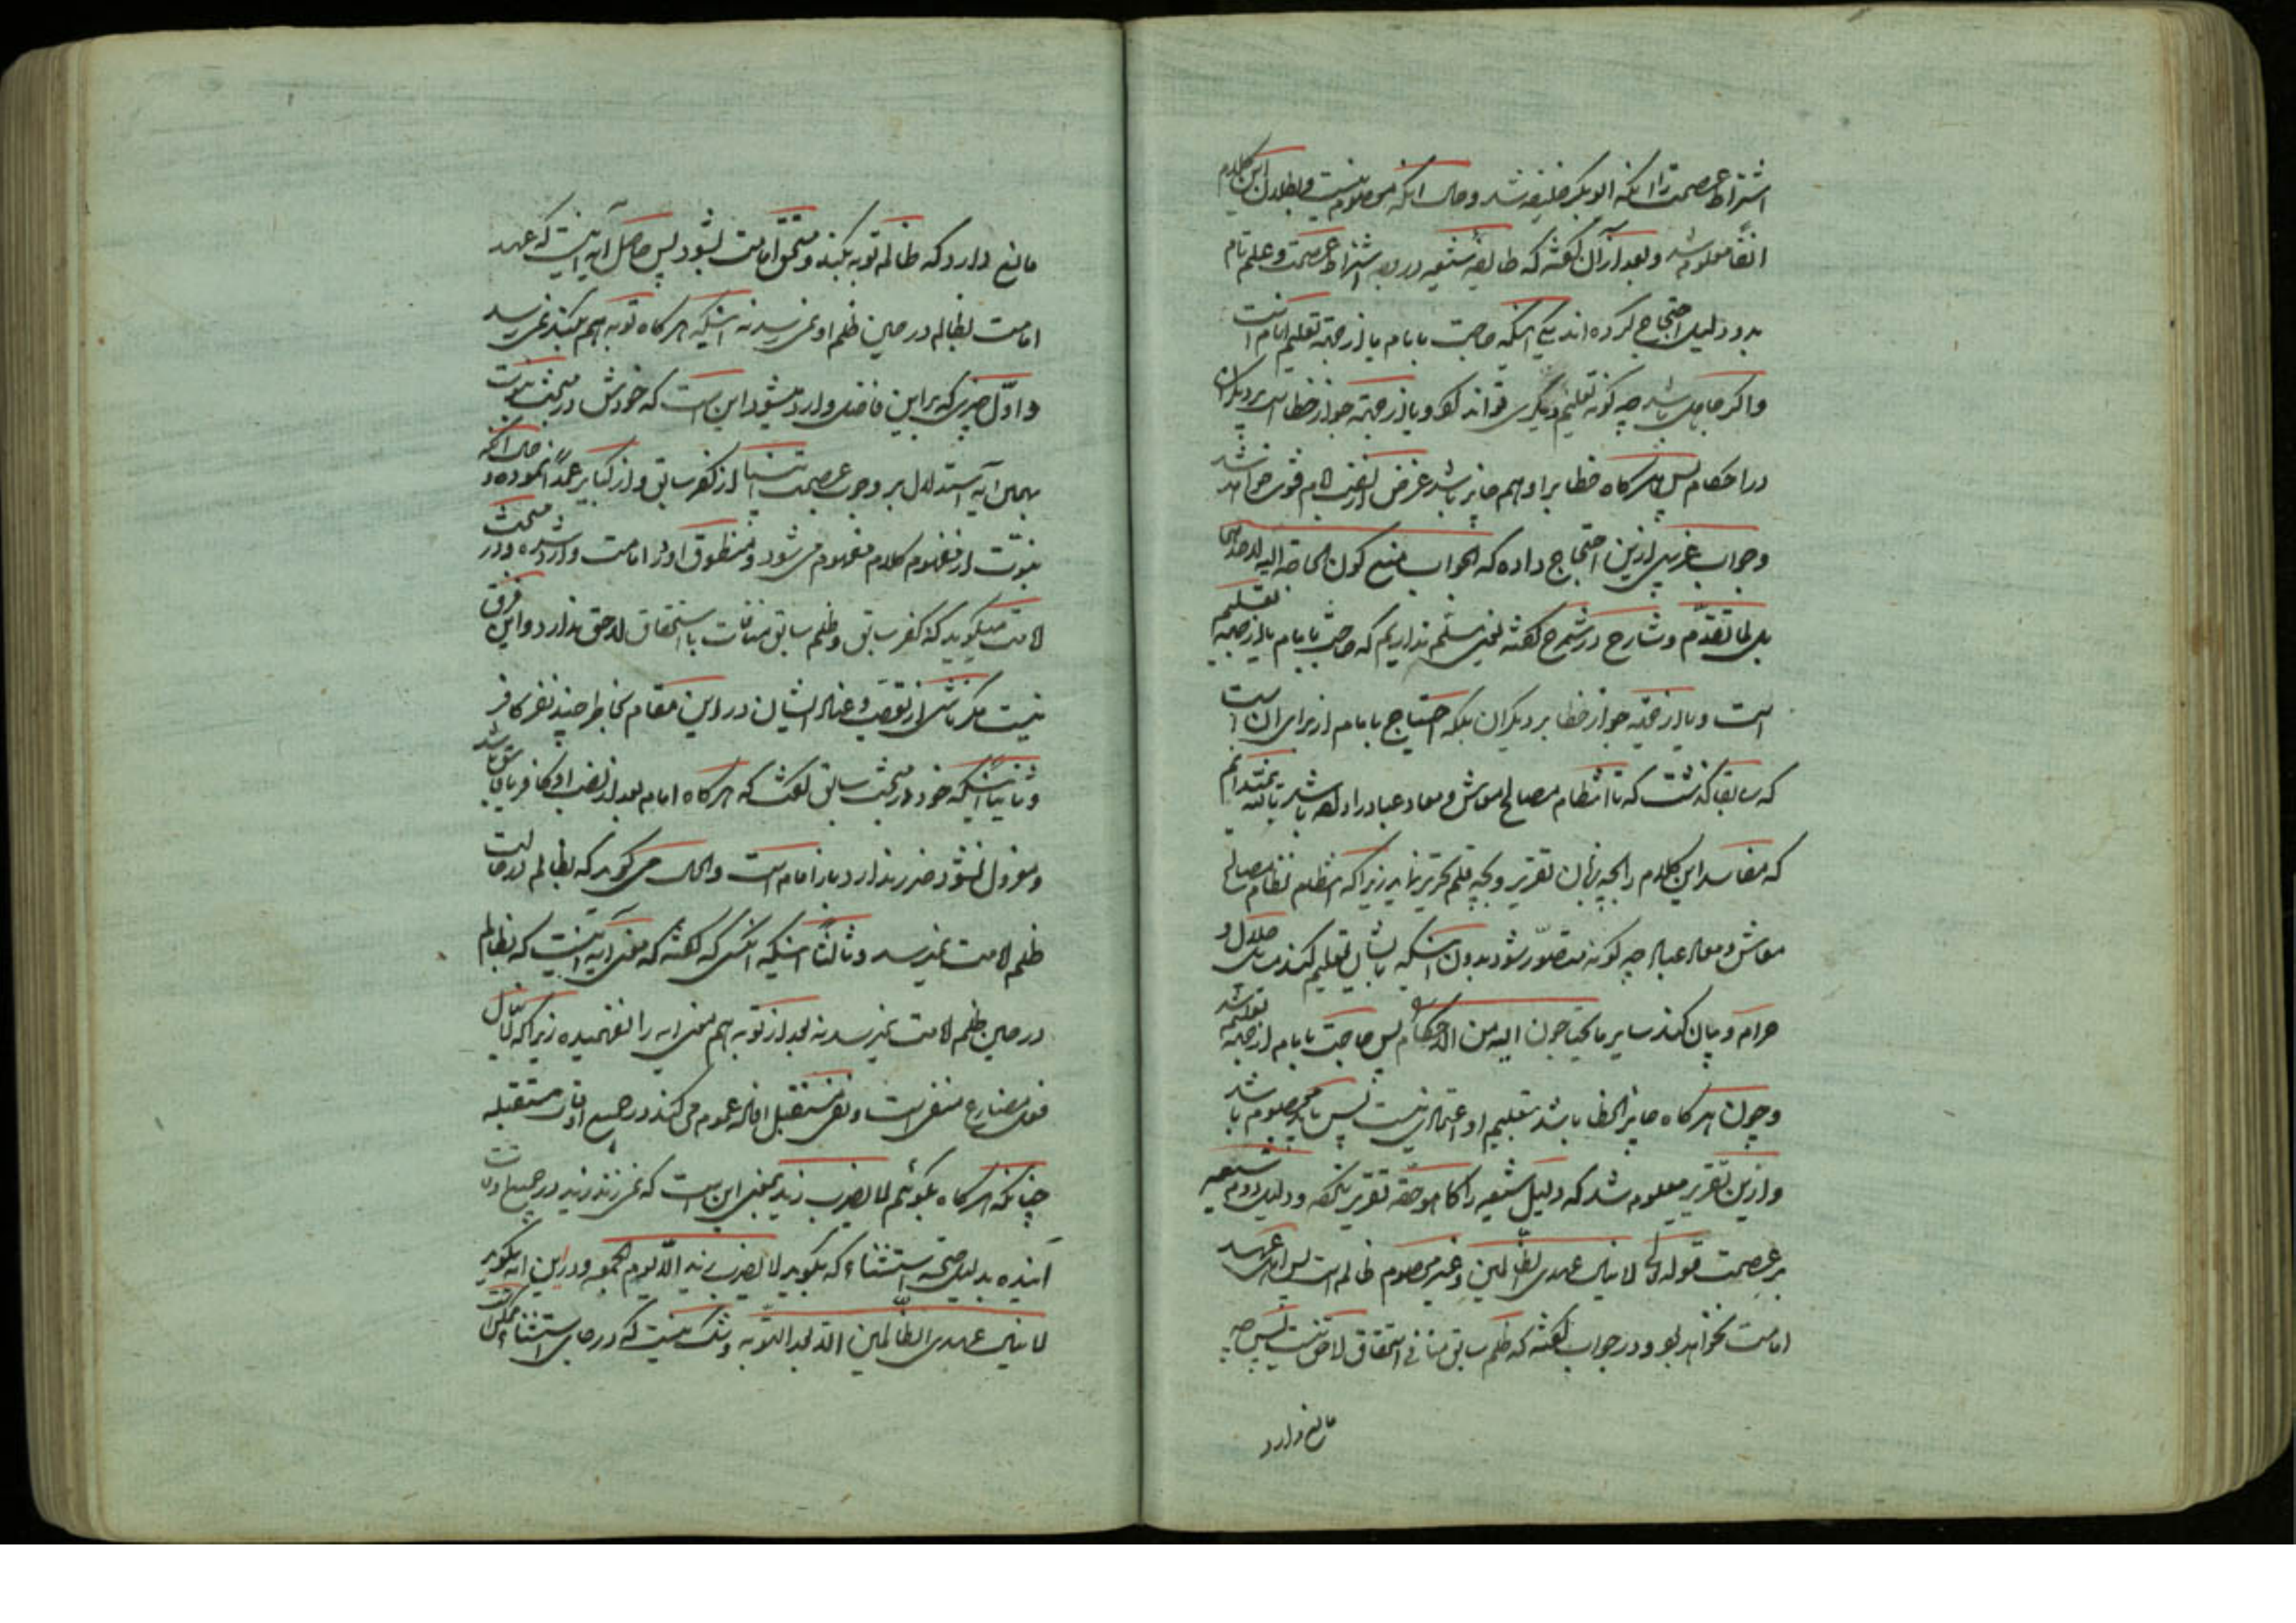 اشتراط عصمت را آنکه ابو بکر خلیفه شد و حال آنکه معصوم نیست و بطلان این کلام
انفا معلوم شد و بعد از آن گفته که طایفه شیعه در وجه اشتراط عصمت و علم تام
بدو دلیل احتجاج کرده اند یکی آنکه حاجت بامام یا از جهة تعلیم امام است
و اگر جاهل باشد چه گونه تعلیم دیگری تواند کرد و یا از جهة جواز خطا است بر دیگران
در احکام پس هرگاه خطا بر او هم جایز باشد غرض از نصب امام فوت خواهد شد
و جواب غریبی ازین احتجاج داده که الجواب منع کون الحاجة الیه لاحدهما
بل لما تقدم و شارح در شرح گفته یعنی مسلم نداریم که حاجت بامام یا از جهة تعلیم
است و یا از جهة جواز خطا بر دیگران بلکه احتیاج بامام از برای آن است
که سابقا گذشت که تا انتظام مصالح معاش و معاد عباد را داده باشد
که مفاسد این کلام را بچه زبان تقریر و بچه قلم تحریر نماید زیرا که انتظام نظام مصالح
معاش و معاد عباد چه گونه متصور شود بدون اینکه بایشان تعلیم کند مسائل حلال و
حرام و بیان کند سایر ما یحتاجون الیه من الاحکام پس حاجت بامام از جهة تعلیم شد
و چون هرگاه جایز الخطا باشد بتعلیم او اعتمادی نیست پس باید معصوم باشد
و ازین تقریر معلوم شد که دلیل شیعه را کما هو حقه تقریر نکرده و دلیل دوم شیعه
بر عصمت قوله تع لا ینال عهدی الظالمین و غیر معصوم ظالم است پس اهل عهد
امامت نخواهد بود و در جواب گفته که ظلم سابق منافی استحقاق لاحق نیست پس چه
مانع دارد
مانع دارد که ظالم توبه بکند و مستحق امامت بشود پس حاصل آیه اینست که عهد
امامت بظالم در حین ظلم او نمی رسد نه اینکه هرگاه توبه هم بکند نمی رسد
و اول چیزی که بر این فاضل وارد میشود این است که خودش در مبحث نبوت
بهمین آیه استدلال بر وجوب عصمت انبیا از کفر سابق و از کبایر عمدا نموده و حال آنکه
نبوت از مفهوم کلام مفهوم می شود و منطوق او در امامت وارد شده و در مبحث
امامت میگوید که کفر سابق و ظلم سابق منافات با استحقاق لاحق ندارد و این فرق
نیست مگر ناشی از تعصب و عناد ایشان در این مقام بخاطر چند نفر کافر
و ثانیا اینکه خود در مبحث سابق گفت که هرگاه امام بعد از نصب او کافر یا فاسق باشد
و معزول نشود ضرر ندارد باز امام است و الحال می گوید که بظالم در حالت
ظلم امامت نمیرسد و ثالثا اینکه آنکسی که گفته که معنی آیه اینست که بظالم
در حین ظلم امامت نمیرسد نه بعد از توبه هم معنی آیه را نفهمیده زیرا که لا ینال
فعل مضارع منفی است و نفی مستقبل افاده عموم می کند در جمیع اوقات مستقبله
چنانکه هرگاه بگوئیم لا یضرب زید معنی این است که نمی زند زید در جمیع اوقات
آینده بدلیل صحة استثناء که بگوید لا یضرب زید الا یوم الجمعه و در این آیه بگوید
لا ینال عهدی الظالمین الا بعد التوبه و شک نیست که در جای استثناء ممکن